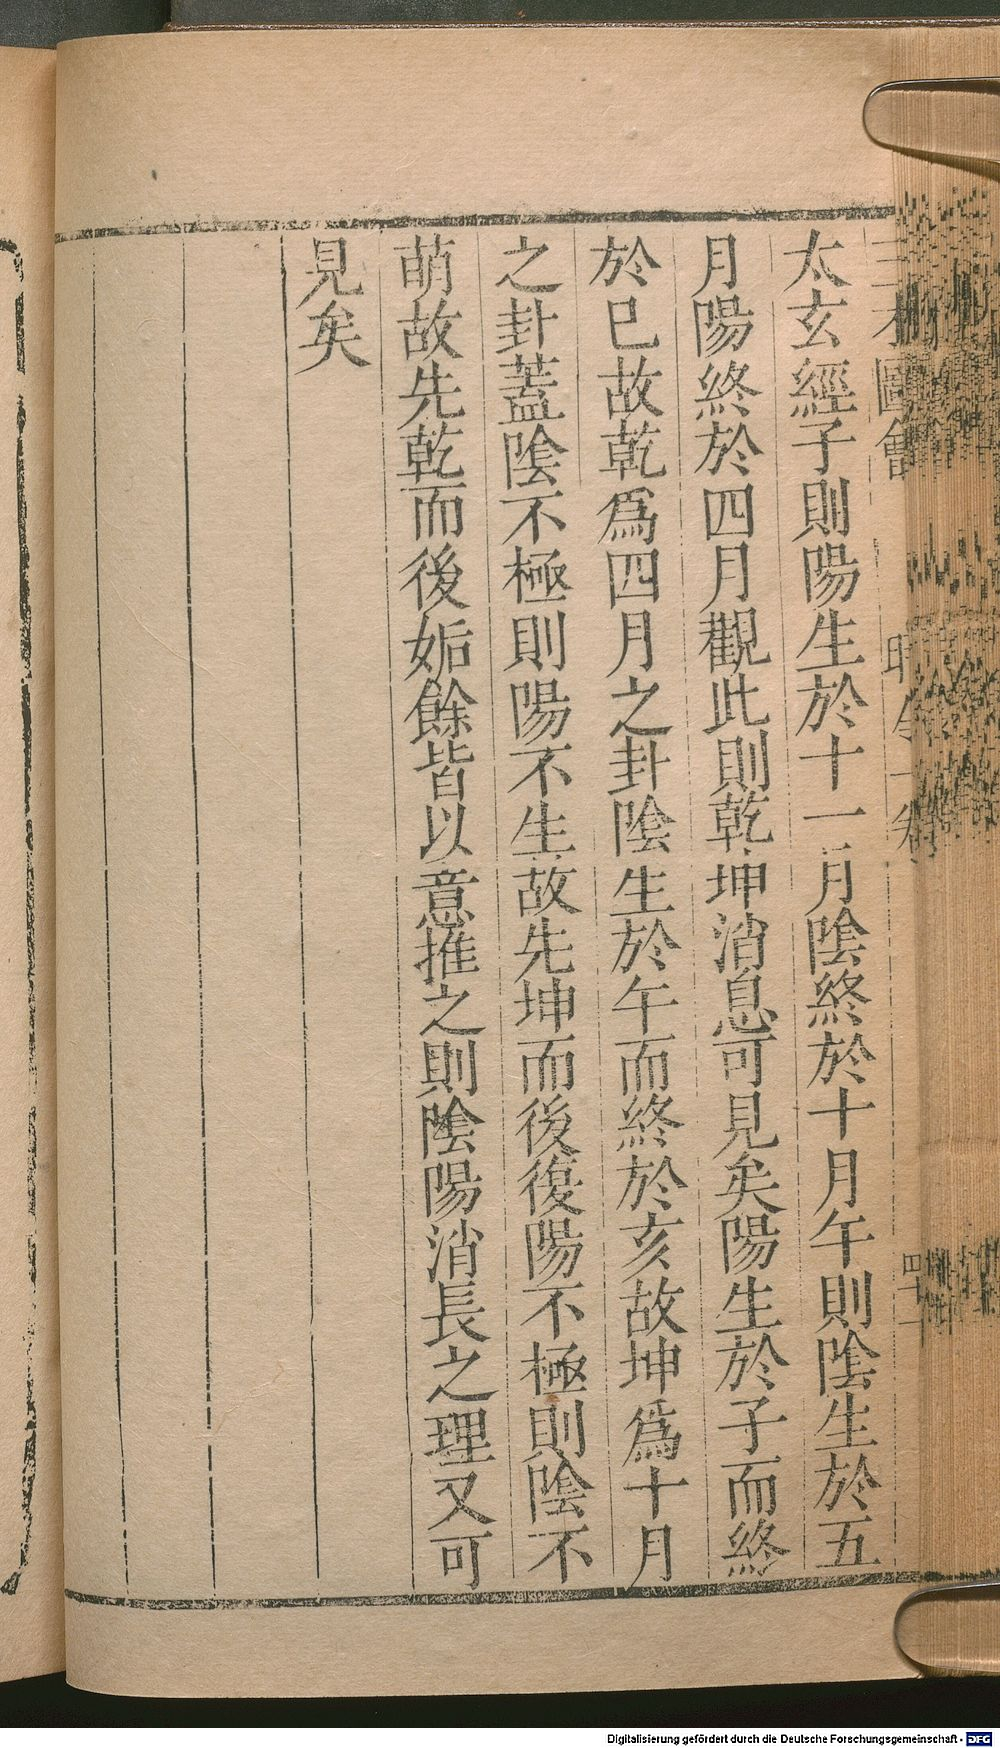 三才圖會 時令一卷 四十一
太玄經子則陽生於十一月陰終於十月午則陰生於五
月陽終於四月觀此則乾坤消息可見矣陽生於子而終
於巳故乾爲四月之卦陰生於午而終於亥故坤爲十月
之卦蓋陰不極則陽不生故先坤而後復陽不極則陰不
萌故先乾而後姤餘皆以意推之則陰陽消長之理又可
見矣
Digitalisierung gefördert durch die Deutsche Forschungsgemeinschaft - DFG